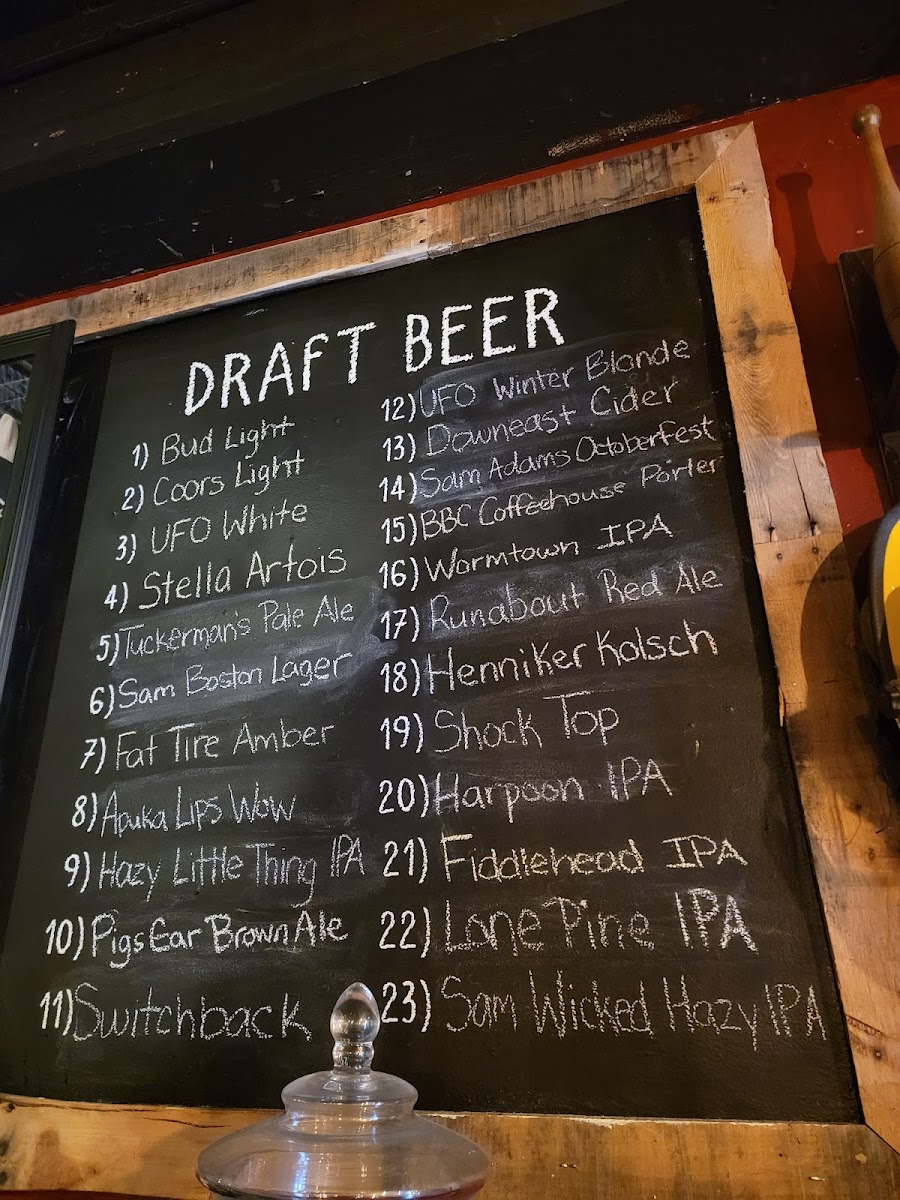 DRAFT BEER
1) Bud Light
2) Coors Light
3) UFO White
4) Stella Artois
5) Tuckerman's Pale Ale
6) Sam Boston Lager
7) Fat Tire Amber
8) Apuka Lips Wow
9) Hazy Little Thing IPA
10) Pigs Ear Brown Ale
11) Switchback
12) UFO Winter Blonde
13) Downeast Cider
14) Sam Adams Octoberfest
15) BBC Coffeehouse Porter
16) Wormtown IPA
17) Runabout Red Ale
18) Henniker Kolsch
19) Shock Top
20) Harpoon IPA
21) Fiddlehead IPA
22) Lone Pine IPA
23) Sam Wicked Hazy IPA